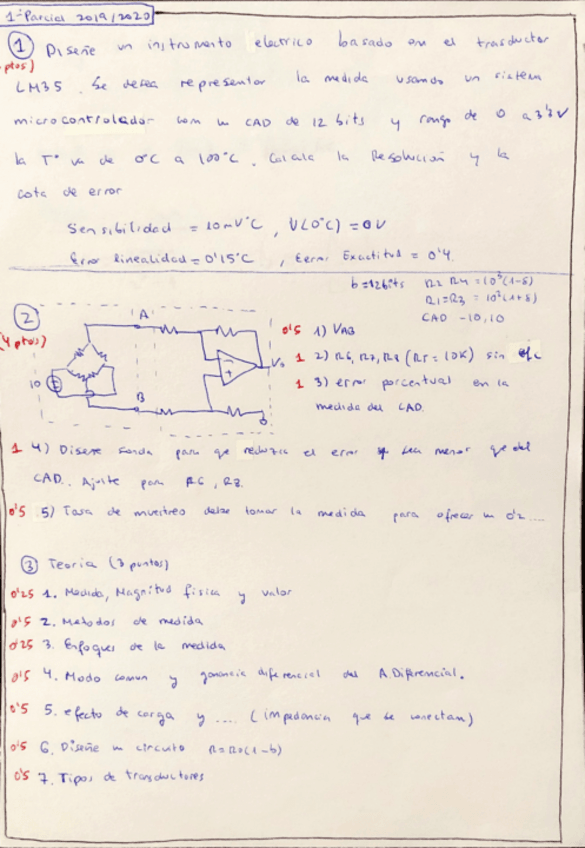 1-Parcial 2019/2020
1 Diseñe un instrumento electrico basado en el trasductor
ptos)
LM35. Se desea representar la medida usando un sistema
microcontrolador con un CAD de 12 bits y rango de 0 a 3'3V
la Tª va de 0°C a 100°C. Calcula la Resolución y la
cota de error
Sensibilidad = 10mV°C, V(0°C) = 0V
Error linealidad = 0'15°C, Error Exactitud = 0'4.
b=12bits R2 R4 = 10³(1-δ)
R1=R3 = 10³(1+δ)
CAD -10,10
2
(4 ptos)
A
B
10
V₀
0'5 1) VAB
1 2) R6, R7, R8 (R5 = 10K) sin
1 3) error porcentual en la
medida del CAD.
1 4) Diseñe sonda para que reduzca el error sea menor que del
CAD. Ajuste para R6, R8.
0'5 5) Tasa de muestreo debe tomar la medida para ofrecer un 0'2....
3 Teoria (3 puntos)
0'25 1. Medida, Magnitud física y valor
0'5 2. Métodos de medida
0'25 3. Enfoques de la medida
0'5 4. Modo comun y ganancia diferencial del A Diferencial.
0'5 5. efecto de carga y .... (impedancia que se conectan)
0'5 6. Diseñe un circuito R=R0(1-b)
0'5 7. Tipos de transductores